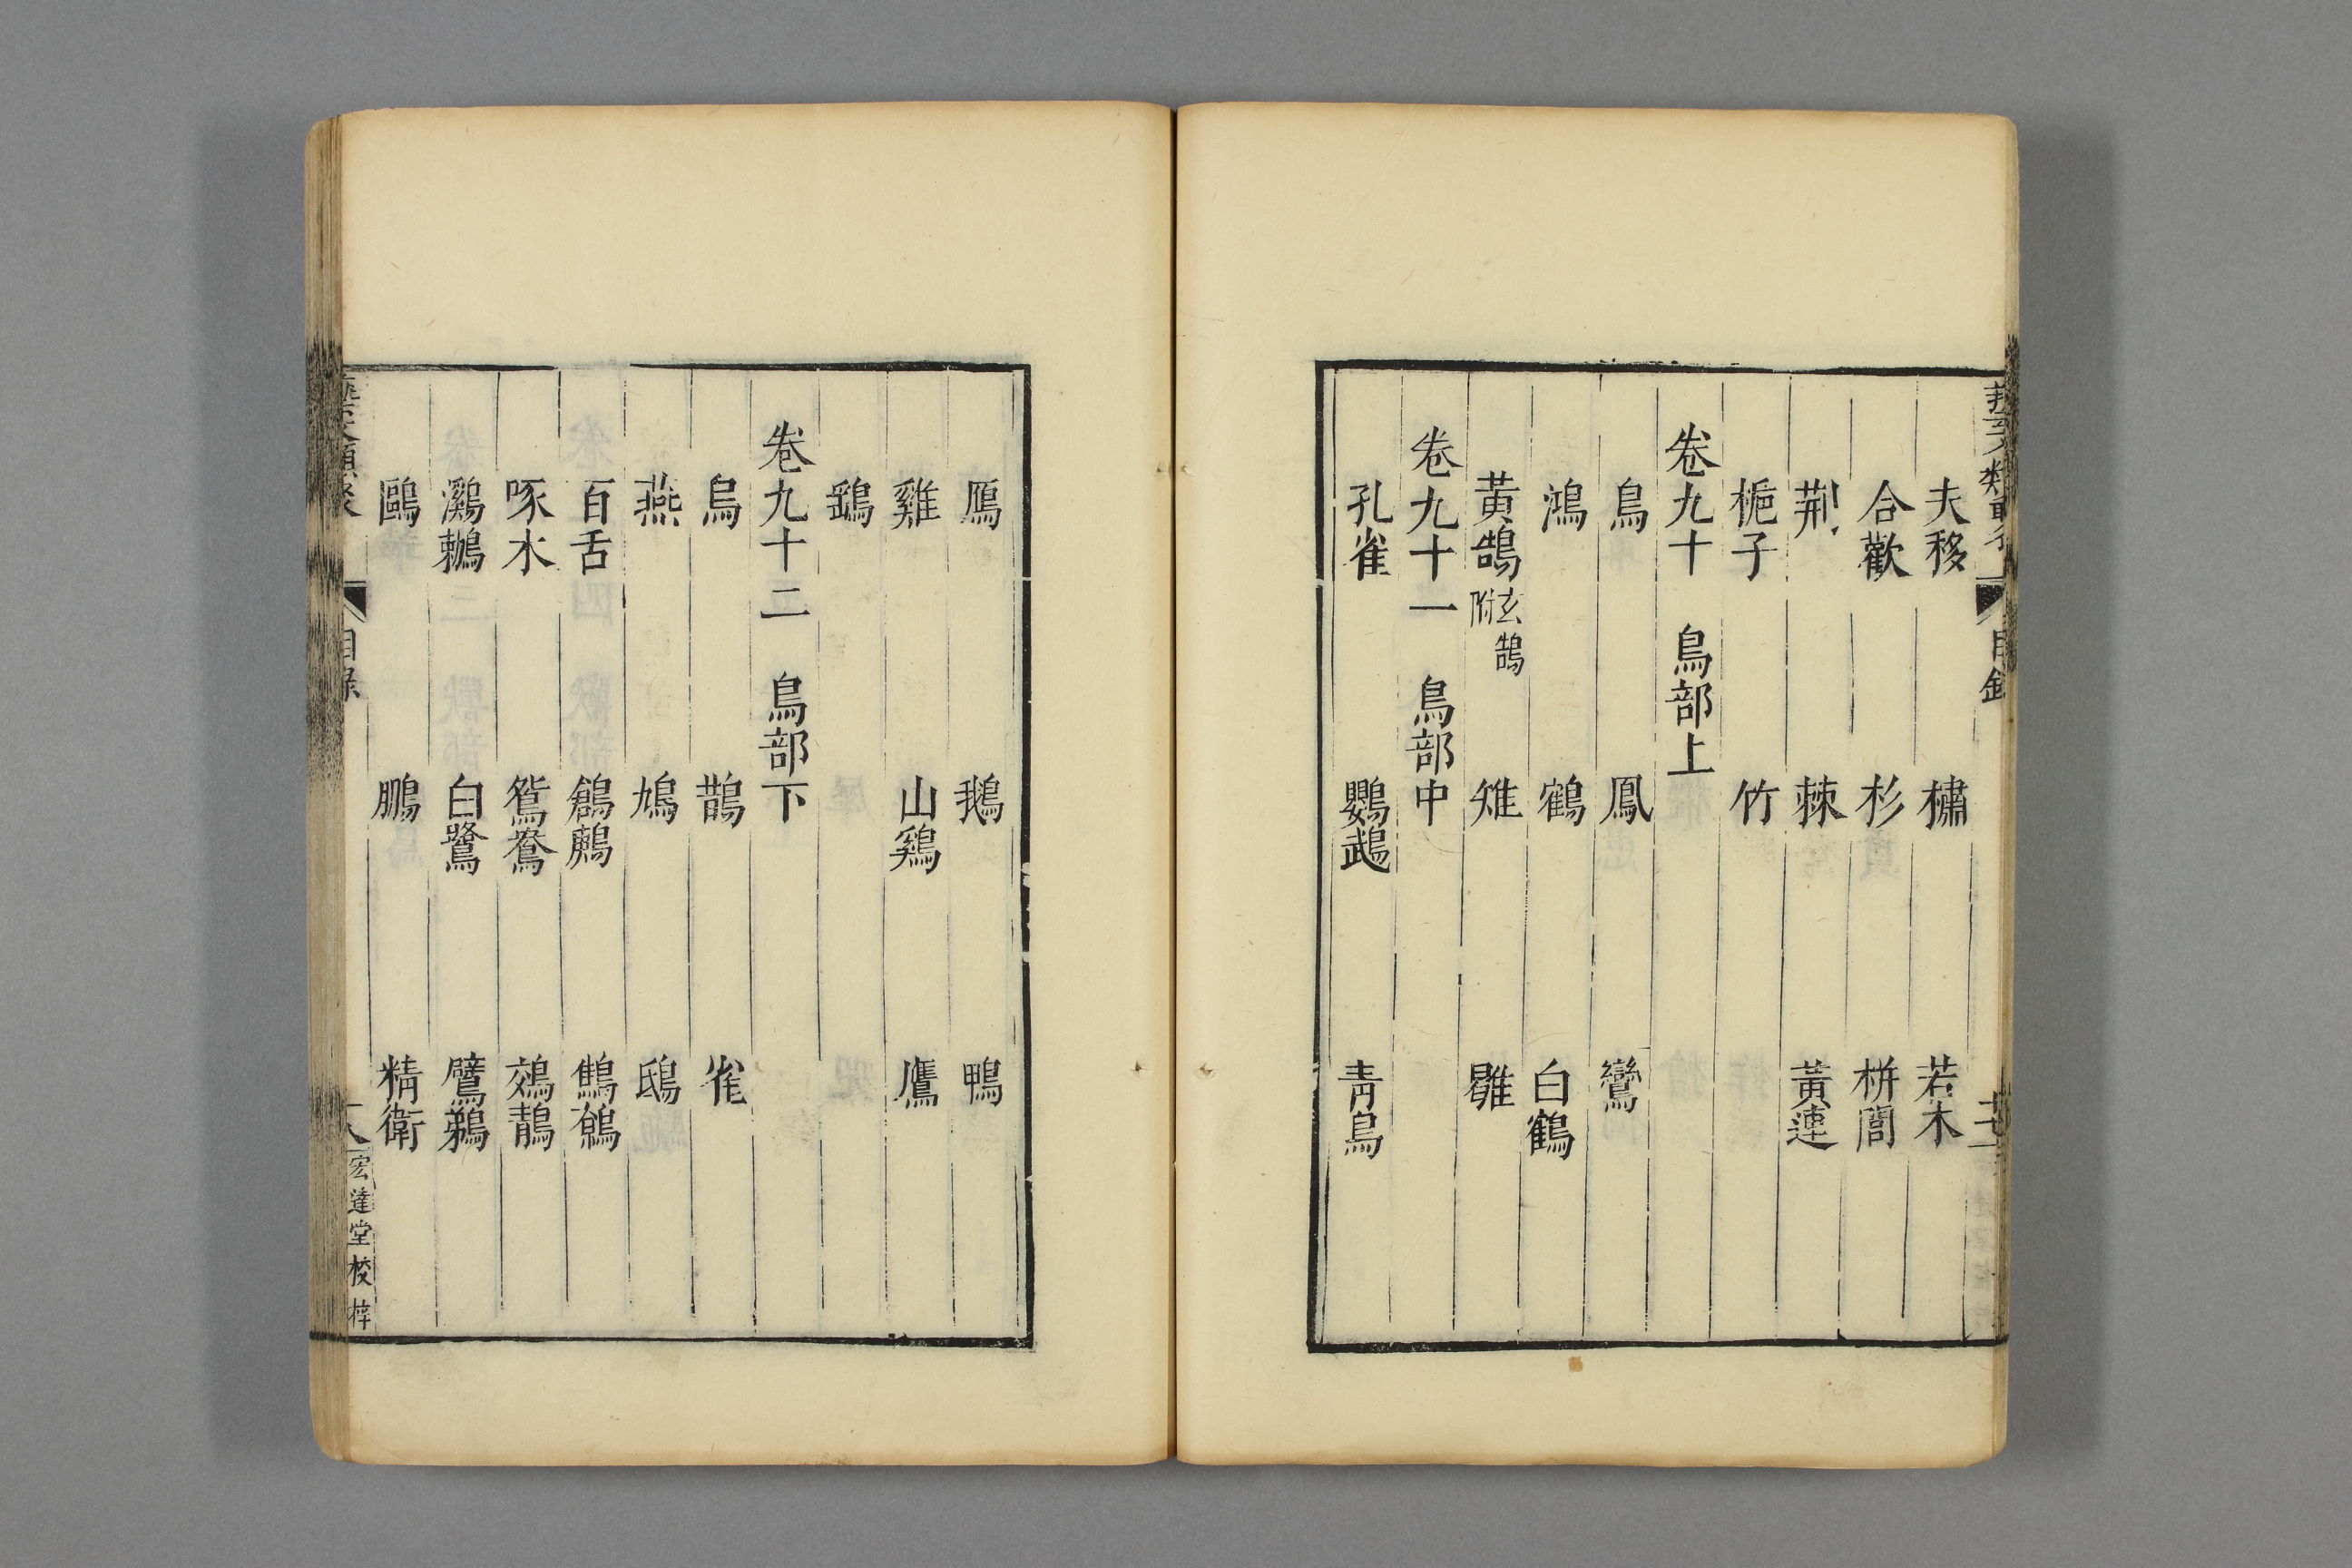 藝文類聚 目錄
夫移 橚 若木
合歡 杉 栟櫚
荆 棘 黃連
梔子 竹
卷九十 鳥部上
鳥 鳳 鸞
鴻 鶴 白鶴
黃鵠玄鵠附 雉 鶡
卷九十一 鳥部中
孔雀 鸚䳇 青鳥
鴈 鵝 鴨
雞 山雞 鷹
鷂
卷九十二 鳥部下
烏 鵲 雀
燕 鳩 鴟
百舌 鶬鶊 鷦鷯
啄木 鴛鴦 鵁鶄
鸂鶒 白鷺 鷿鵜
鷗 鵬 精衛
藝文類聚 目錄 宏達堂校梓